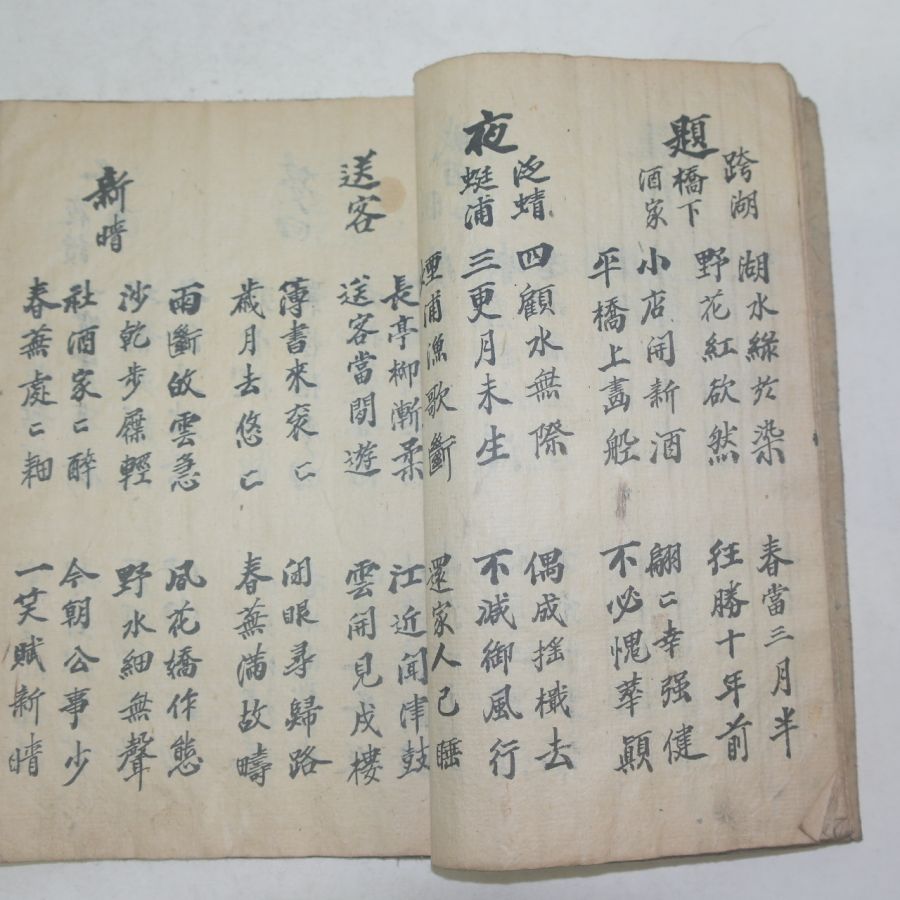 題跨湖橋下酒家
湖水綠於染 春當三月半
野花紅欲然 狂勝十年前
小店開新酒 翩〻幸强健
平橋上畵船 不必愧華顚
夜泛蜻蜓浦
四顧水無際 偶成搖檝去
三更月未生 不減御風行
煙浦漁歌斷 還家人已睡
送客
長亭柳漸柔 江近聞津鼓
送客當閒遊 雲開見戍樓
簿書來袞〻 閉眼尋歸路
歲月去悠〻 春蕪滿故疇
新晴
雨斷雲急 風花嬌作態
沙乾步屧輕 野水細無聲
社酒家〻醉 今朝公事少
春蕪處〻耕 一笑賦新晴